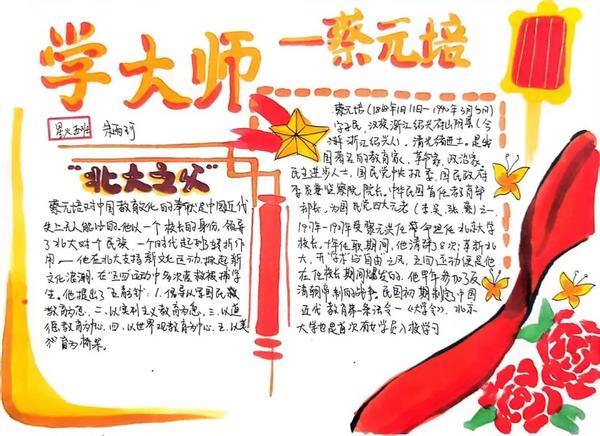 学大师 —蔡元培
星火五班
"北大之父"
蔡元培对中国教育文化的革新是中国近代
史上无人能比的。他以一个校长的身份,领导
了北大对个民族、一个时代起到转折作
用——他在北大支持新文化运动,掀起新
文化浪潮,在五四运动中多次营救被捕学
生。他提出了"五育":1.倡导以军国民教
教育为 二.以实利主义教育为 三.以道
德教育为中心 四.以世界观教育为中心 五.以美
育为桥梁。
蔡元培(1868年1月11日—1940年3月5日)
字孑民,汉族,浙江绍兴府山阴县(今
浙江绍兴)人,清光绪进士。是
国著名的教育家、革命家、政治家。
民主进步人士,国民党中央执委、国民政府
委员兼监察院院长。中华民国首任教育部
部长,为国民党四大元老(李、吴、张、蔡)之一
1917年-1919年受蔡元 任北京大学
校长,十年任职期间,他清辞8次;革新北
大,开"学术"与"自由"之风,五四运动便是他
在任校长期间爆发的。他早年参加了反
清朝帝制的战争,民国初期制定中国
近代教育 法令—《大学令》。北京
大学也是首次有女学员入校学习